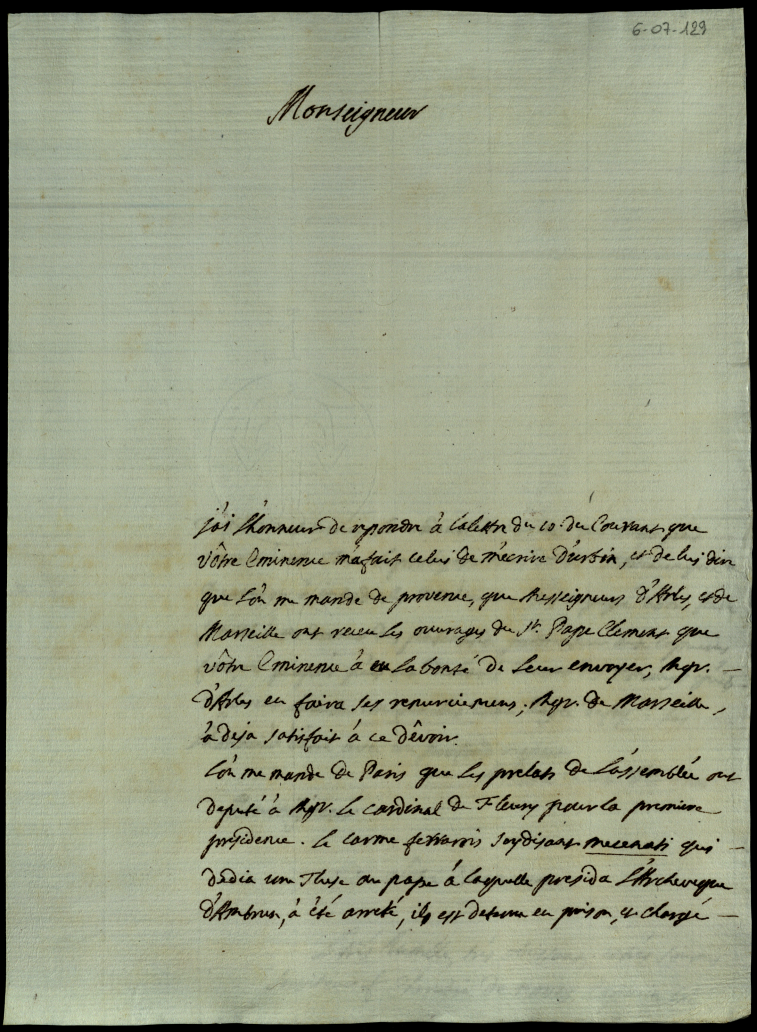 6-07-129
Monseigneur
j'ai l'honneur de repondre à la lettre du 10. du Courant que
vôtre Eminence m'a fait celui de m'écrire d'urbin, et de lui dire
que l'on me mande de provence, que Messeigneurs d'Arles, et de
Marseille ont receu les ouvrages du St. Pape Clement que
vôtre Eminence à eu la bonté de leur envoyer, Mgr. –
d'Arles en faira ses remerciemens, Mgr. de Marseille,
à deja satisfait à ce dêvoir.
l'on me mande de Paris que les prelats de l'assemblée ont
deputé à Mgr. le cardinal de Fleury pour la premiere
presidence. le carme soydisant mecenati qui –
dedia une These au pape à laquelle presida l'Archeveque
d'Ambrun, à été arreté, il est detenu en prison, et chargé –